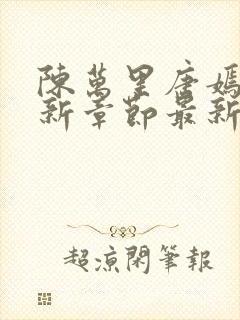 陳萬里唐嫣
新章節最新
超涼閑筆報